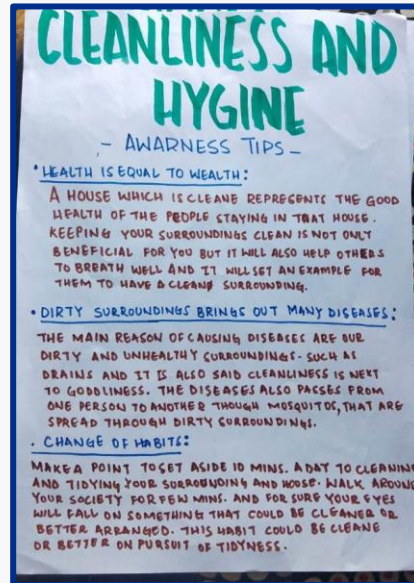 CLEANLINESS AND
HYGINE
- AWARNESS TIPS -
• HEALTH IS EQUAL TO WEALTH:
A HOUSE WHICH IS CLEANE REPRESENTS THE GOOD
HEALTH OF THE PEOPLE STAYING IN THAT HOUSE.
KEEPING YOUR SURROUNDINGS CLEAN IS NOT ONLY
BENEFICIAL FOR YOU BUT IT WILL ALSO HELP OTHERS
TO BREATH WELL AND IT WILL SET AN EXAMPLE FOR
THEM TO HAVE A CLEAN SURROUNDING.
• DIRTY SURROUNDINGS BRINGS OUT MANY DISEASES:
THE MAIN REASON OF CAUSING DISEASES ARE OUR
DIRTY AND UNHEALTHY SURROUNDINGS - SUCH AS
DRAINS AND IT IS ALSO SAID CLEANLINESS IS NEXT
TO GODDLINESS. THE DISEASES ALSO PASSES FROM
ONE PERSON TO ANOTHER THOUGH MOSQUITOS, THAT ARE
SPREAD THROUGH DIRTY SURROUNDINGS.
. CHANGE OF HABITS:
MAKE A POINT TO SET ASIDE 10 MINS. A DAY TO CLEANING
AND TIDYING YOUR SURROUNDING AND HOUSE. WALK AROUND
YOUR SOCIETY FOR FEW MINS. AND FOR SURE YOUR EYES
WILL FALL ON SOMETHING THAT COULD BE CLEANER OR
BETTER ARRANGED. THIS HABIT COULD BE CLEANE
OR BETTER ON PURSUIT OF TIDYNESS.